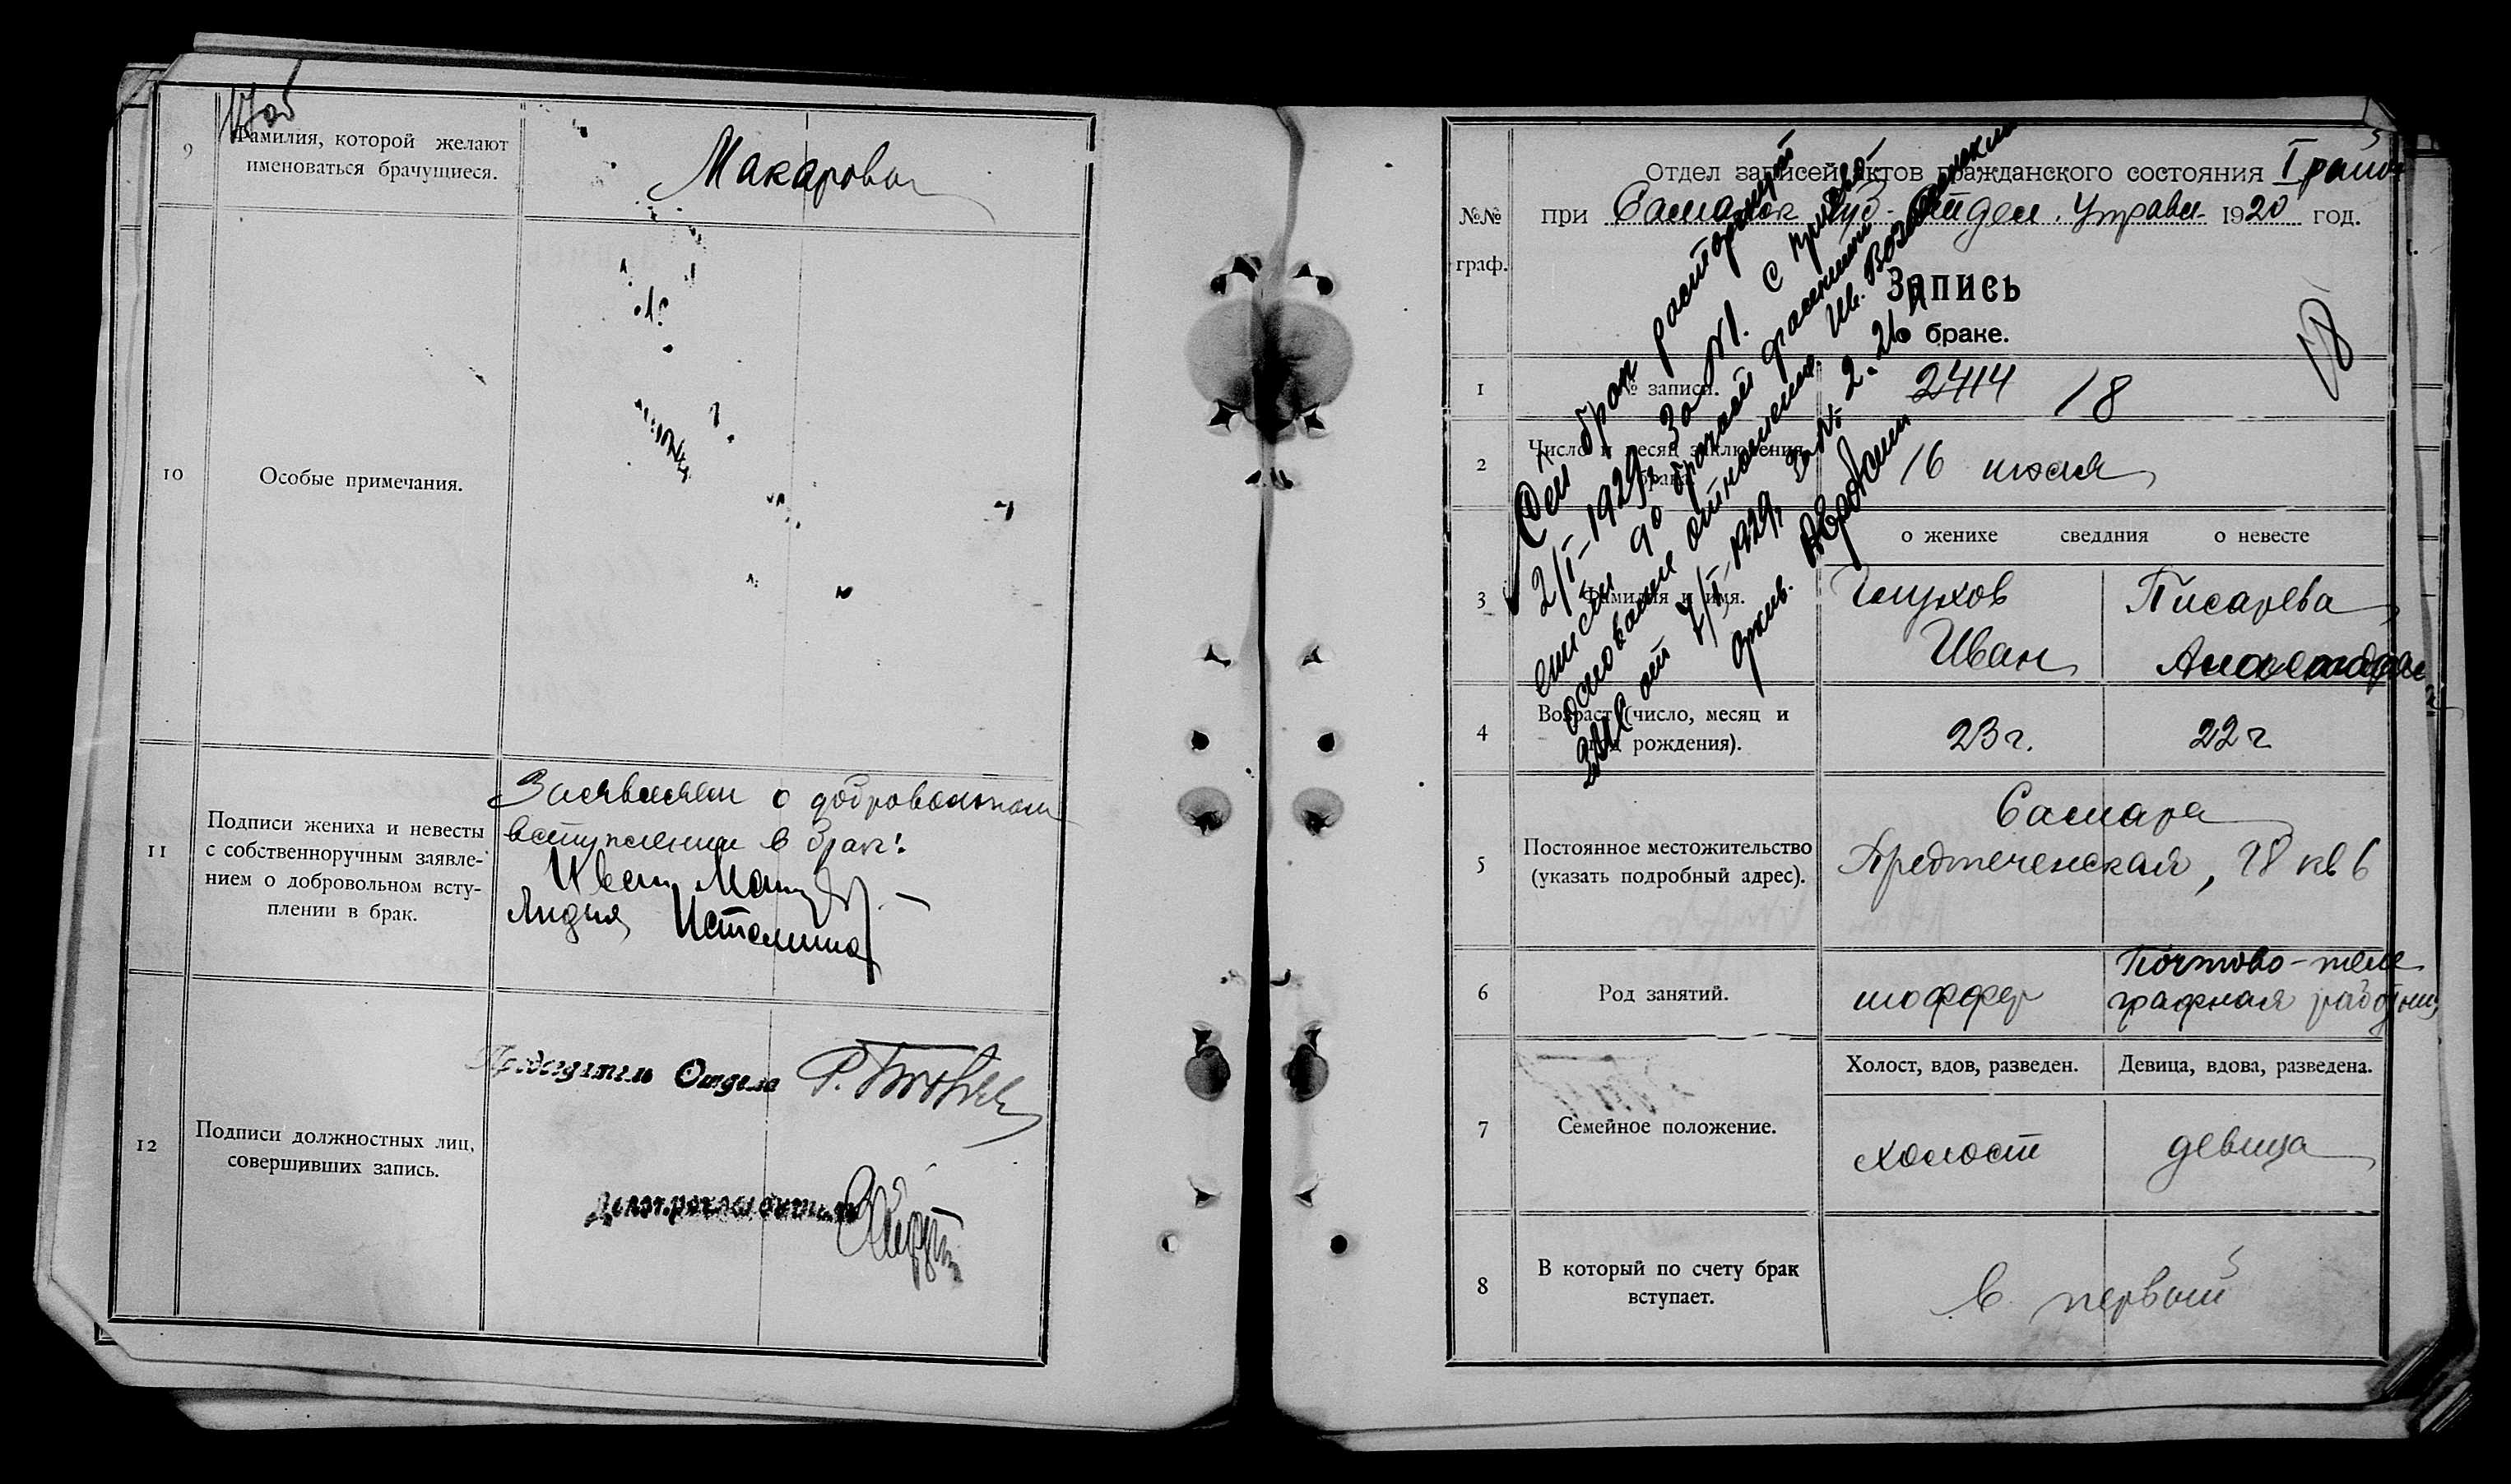 9
Фамилия, которой желают
именоваться брачущиеся.
Макаровы
10
Особые примечания.
11
Подписи жениха и невесты
с собственноручным заявле-
нием о добровольном всту-
плении в брак.
Заявляем о добровольном
вступлении в брак:
Иван
Лидия
12
Подписи должностных лиц,
совершивших запись.
Председатель Отдела
Делопроизводитель
Отдел записей актов гражданского состояния I район
№№
граф.
при Самарск Губ. отдел. Управл. 1920 год.
Запись
о браке.
18
1
№ записи.
2414 18
2
Число и месяц заключения
брака
16 июля
о женихе сведдния о невесте
3
Фамилия и имя.
Глухов
Иван
Писарева
Александра
4
Возраст (число, месяц и
год рождения).
23 г.
22 г
5
Постоянное местожительство
(указать подробный адрес).
Самара
Предтеченская, 78 кв 6
6
Род занятий.
шоффер
Почтово-теле
графная работниц
7
Семейное положение.
Холост, вдов, разведен.
Девица, вдова, разведена.
холост
девица
8
В который по счету брак
вступает.
в первый
Сей брак расторгнут
2/I-1929г за №1. с присво-
ением до брачной фамилии
основание отношения. Ив. Вознесенским
ЗАГС от 7/I-1929г за №
архив.